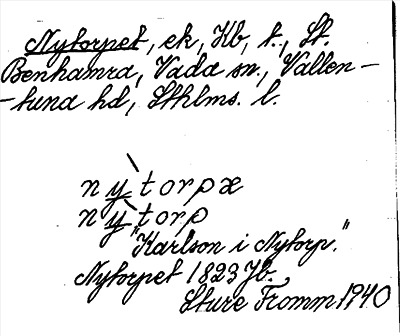 Nytorpet, ek, Kb, t., St.
Benhamra, Vada sn., Vallen-
-tuna hd, Sthlms. l.
nỳtorpæ
nỳtorp
"Karlson i Nytorp."
Nytorpet 1823 Jb.
Sture Fromm 1940